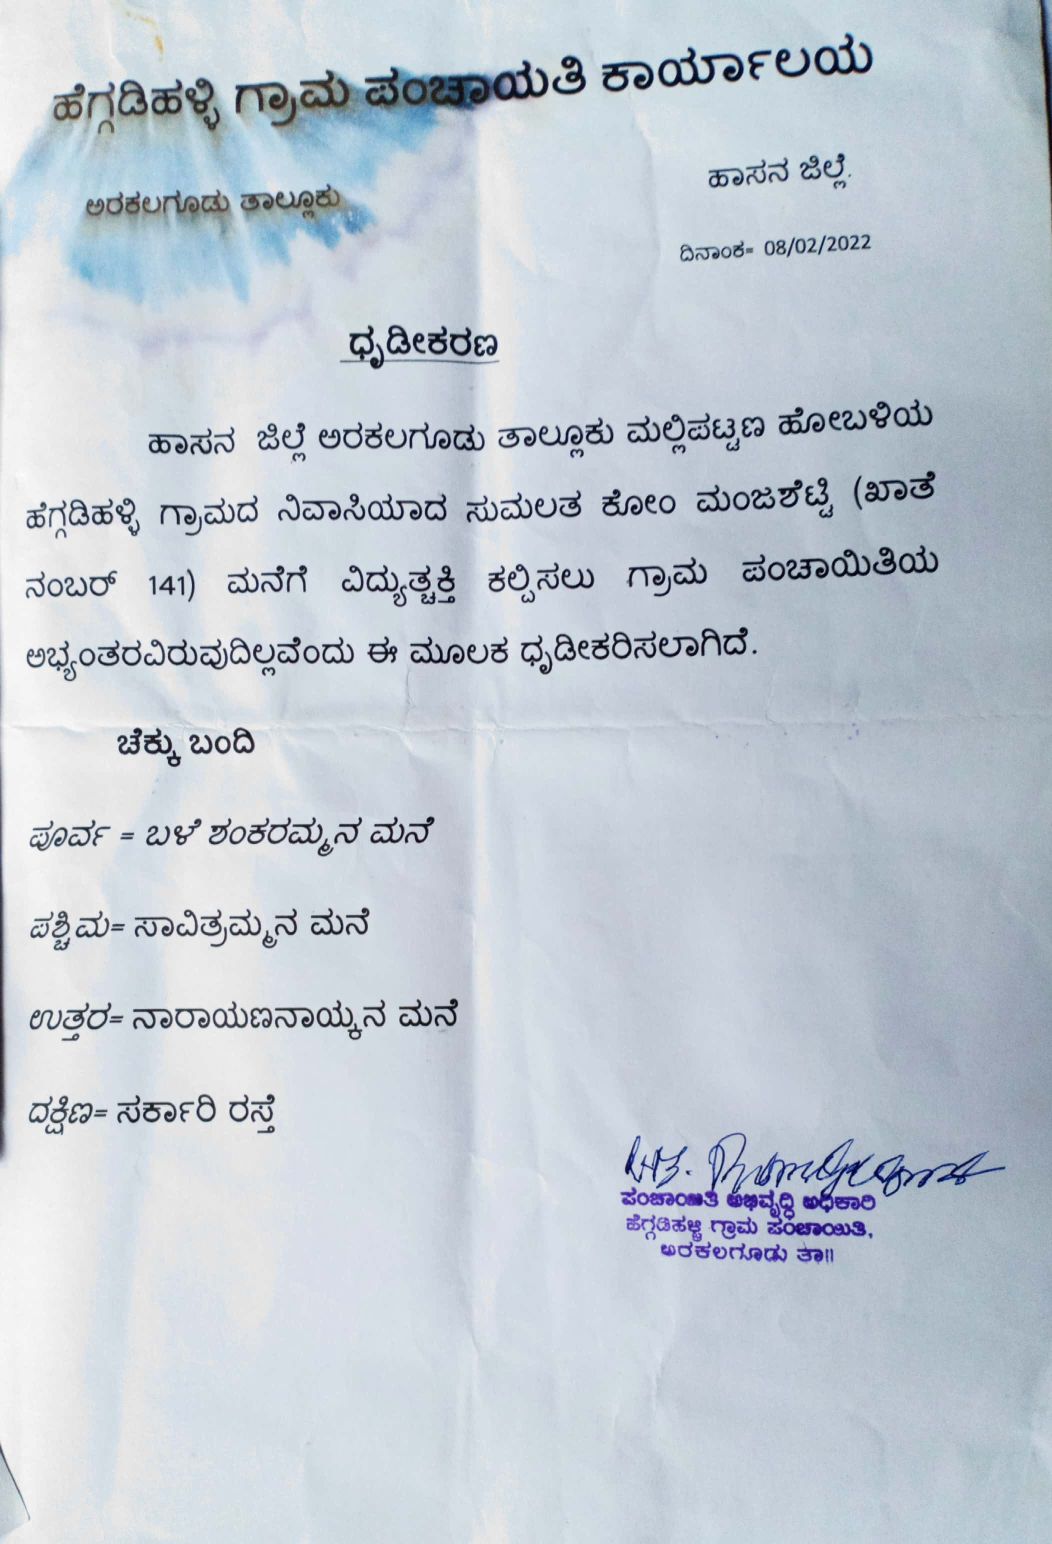 ಹೆಗ್ಗಡಿಹಳ್ಳಿ ಗ್ರಾಮ ಪಂಚಾಯತಿ ಕಾರ್ಯಾಲಯ
ಅರಕಲಗೂಡು ತಾಲ್ಲೂಕು
ಹಾಸನ ಜಿಲ್ಲೆ.
ದಿನಾಂಕ= 08/02/2022
ಧೃಡೀಕರಣ
ಹಾಸನ ಜಿಲ್ಲೆ ಅರಕಲಗೂಡು ತಾಲ್ಲೂಕು ಮಲ್ಲಿಪಟ್ಟಣ ಹೋಬಳಿಯ
ಹೆಗ್ಗಡಿಹಳ್ಳಿ ಗ್ರಾಮದ ನಿವಾಸಿಯಾದ ಸುಮಲತ ಕೋಂ ಮಂಜಶೆಟ್ಟಿ (ಖಾತೆ
ನಂಬರ್ 141) ಮನೆಗೆ ವಿದ್ಯುತ್ಚಕ್ತಿ ಕಲ್ಪಿಸಲು ಗ್ರಾಮ ಪಂಚಾಯಿತಿಯ
ಅಭ್ಯಂತರವಿರುವುದಿಲ್ಲವೆಂದು ಈ ಮೂಲಕ ಧೃಡೀಕರಿಸಲಾಗಿದೆ.
ಚೆಕ್ಕು ಬಂದಿ
ಪೂರ್ವ = ಬಳೆ ಶಂಕರಮ್ಮನ ಮನೆ
ಪಶ್ಚಿಮ= ಸಾವಿತ್ರಮ್ಮನ ಮನೆ
ಉತ್ತರ= ನಾರಾಯಣನಾಯ್ಕನ ಮನೆ
ದಕ್ಷಿಣ= ಸರ್ಕಾರಿ ರಸ್ತೆ
ಪಂಚಾಯಿತಿ ಅಭಿವೃದ್ಧಿ ಅಧಿಕಾರಿ
ಹೆಗ್ಗಡಿಹಳ್ಳಿ ಗ್ರಾಮ ಪಂಚಾಯಿತಿ,
ಅರಕಲಗೂಡು ತಾ||